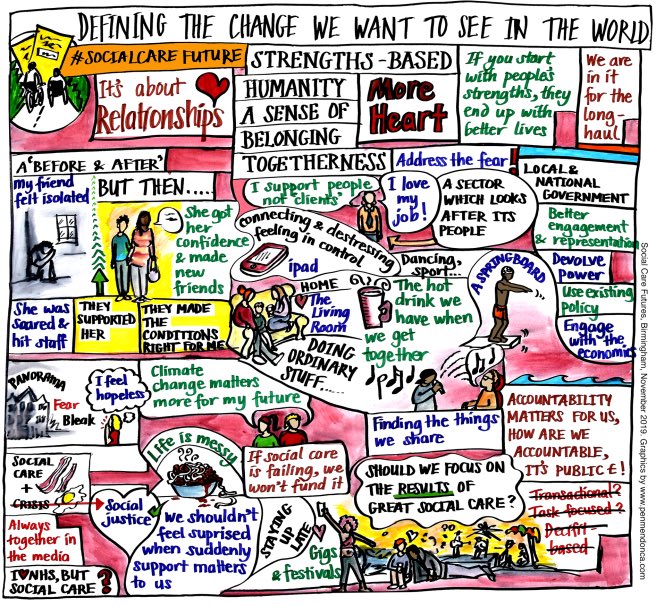 DEFINING THE CHANGE WE WANT TO SEE IN THE WORLD
#SOCIALCARE FUTURE
It's about
Relationships
STRENGTHS-BASED
HUMANITY
A SENSE OF
BELONGING
TOGETHERNESS
More
Heart
If you start
with people's
strengths, they
end up with
better lives
We are
in it
for the
long-
haul
A 'BEFORE & AFTER'
my friend
felt isolated
BUT THEN.....
She got
her
confidence
& made
new
friends
She was
scared &
hit staff
THEY
SUPPORTED
HER
THEY MADE
THE
CONDITIONS
RIGHT FOR ME
I support people
not 'clients'
I love
my
job!
Address the fear!
A SECTOR
WHICH LOOKS
AFTER ITS
PEOPLE
LOCAL &
NATIONAL
GOVERNMENT
Better
engagement
& representation
Devolve
power
Use existing
policy
Engage
with the
economics
connecting & destressing
feeling in control
ipad
HOME
The
Living
Room
DOING
ORDINARY
STUFF.....
Dancing,
sport...
The hot
drink we
have when
we get
together
A SPRINGBOARD
Finding the things
we share
PANORAMA
Fear
Bleak
I feel
hopeless
Climate
change matters
more for my future
If social care
is failing, we
won't fund it
Life is messy
SOCIAL
CARE
+
CRISIS
Social
justice
We shouldn't
feel suprised
when suddenly
support matters
to us
Always
together in
the media
I ♥ NHS, BUT
SOCIAL CARE ?
STAYING
UP
LATE
Gigs
& festivals
SHOULD WE FOCUS ON
THE RESULTS OF
GREAT SOCIAL CARE?
ACCOUNTABILITY
MATTERS FOR US,
HOW ARE WE
ACCOUNTABLE,
IT'S PUBLIC £!
Transactional?
Task-focused?
Deficit-
based
Social Care Futures, Birmingham, November 2019. Graphics by www.penmendonca.com